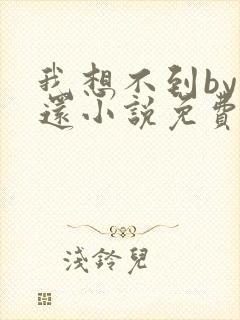 我想不到by
還小說免費
淺鈴兒